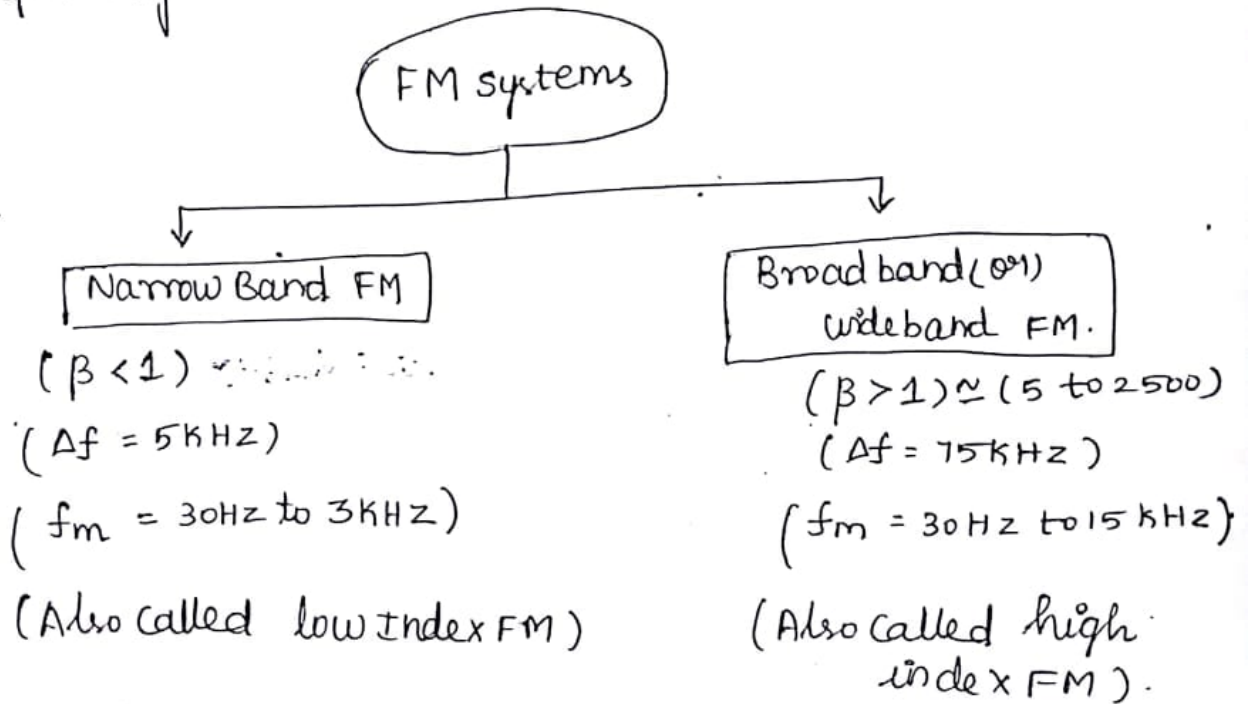 FM systems
Narrow Band FM
(β < 1)
(Δf = 5KHz)
(fm = 30Hz to 3KHz)
(Also called low Index FM)
Broad band (or)
wideband FM.
(β > 1) ≃ (5 to 2500)
(Δf = 75KHz)
(fm = 30Hz to 15KHz)
(Also called high
index FM).